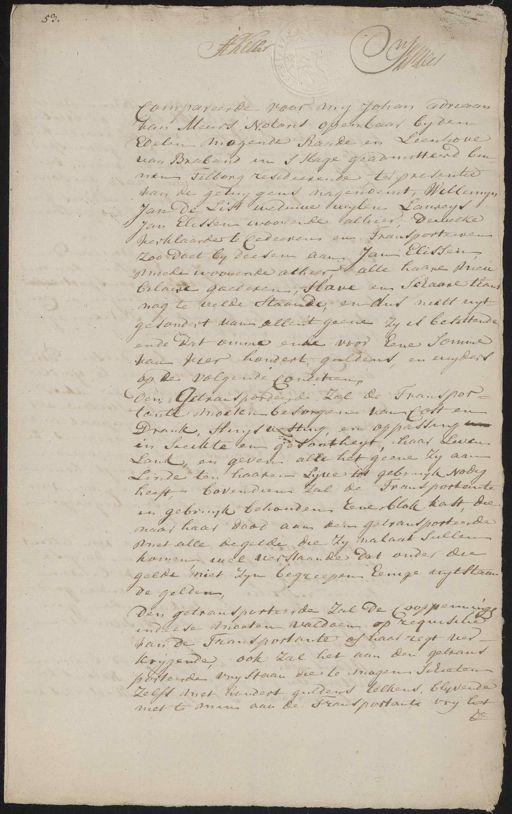 53.
Compareerde voor my Johan Adriaan
van Meurs Notaris openbaar by den
Edelen Mogende Raade en Leenhove
van Braband in s Hage geadmitteerd bin-
nen Tilborg resideerende ter presentie
van de getuygens nagenoemt, Willemyn
Jan De weduwe wylen Laureys
Jan Elissen woonende alhier, Dewelke
verklaarde te Cedeeren en Transporteeren
zoo Doet by deesen aan Jan Elissen
mede woonende alhier, alle haare Meu
bilaire goederen, Have en
nog te velde Staande, en dus niets uyt
gesondert van allent geene zy is besittende
ende dat omme ende voor Eene Somme
van vier hondert guldens, en wyders
op de volgende Conditien,
Den Getransporteerde zal de Transpor-
tante moeten besorgen van Cost en
Drank, Huysvesting, en oppassing
in Siekte en gesontheyt, haar Leven
Lank, en geven alle het geene zy aan
Linde ten haaren Lyve tot gebruyk Nodig
heeft. bovendien zal de Transportante
in gebruyk behouden Eene blok kast, die
naar haar dood aan den getransporteerde
met alle de gelde die zy nalaat Sullen
komen, wel verstaande dat onder die
gelde niet zyn begreepen Eenige uytstaan
de gelden
Den getransporteerde zal de Cooppenning
in deese moeten voldoen op requisitie
van de Transportante of haar regt ver
krygende, ook zal het aan den getrans
porteerde vry staan die te mogen
zelfs met hondert guldens telkens, blyvende
niet te min aan de Transportante vry het